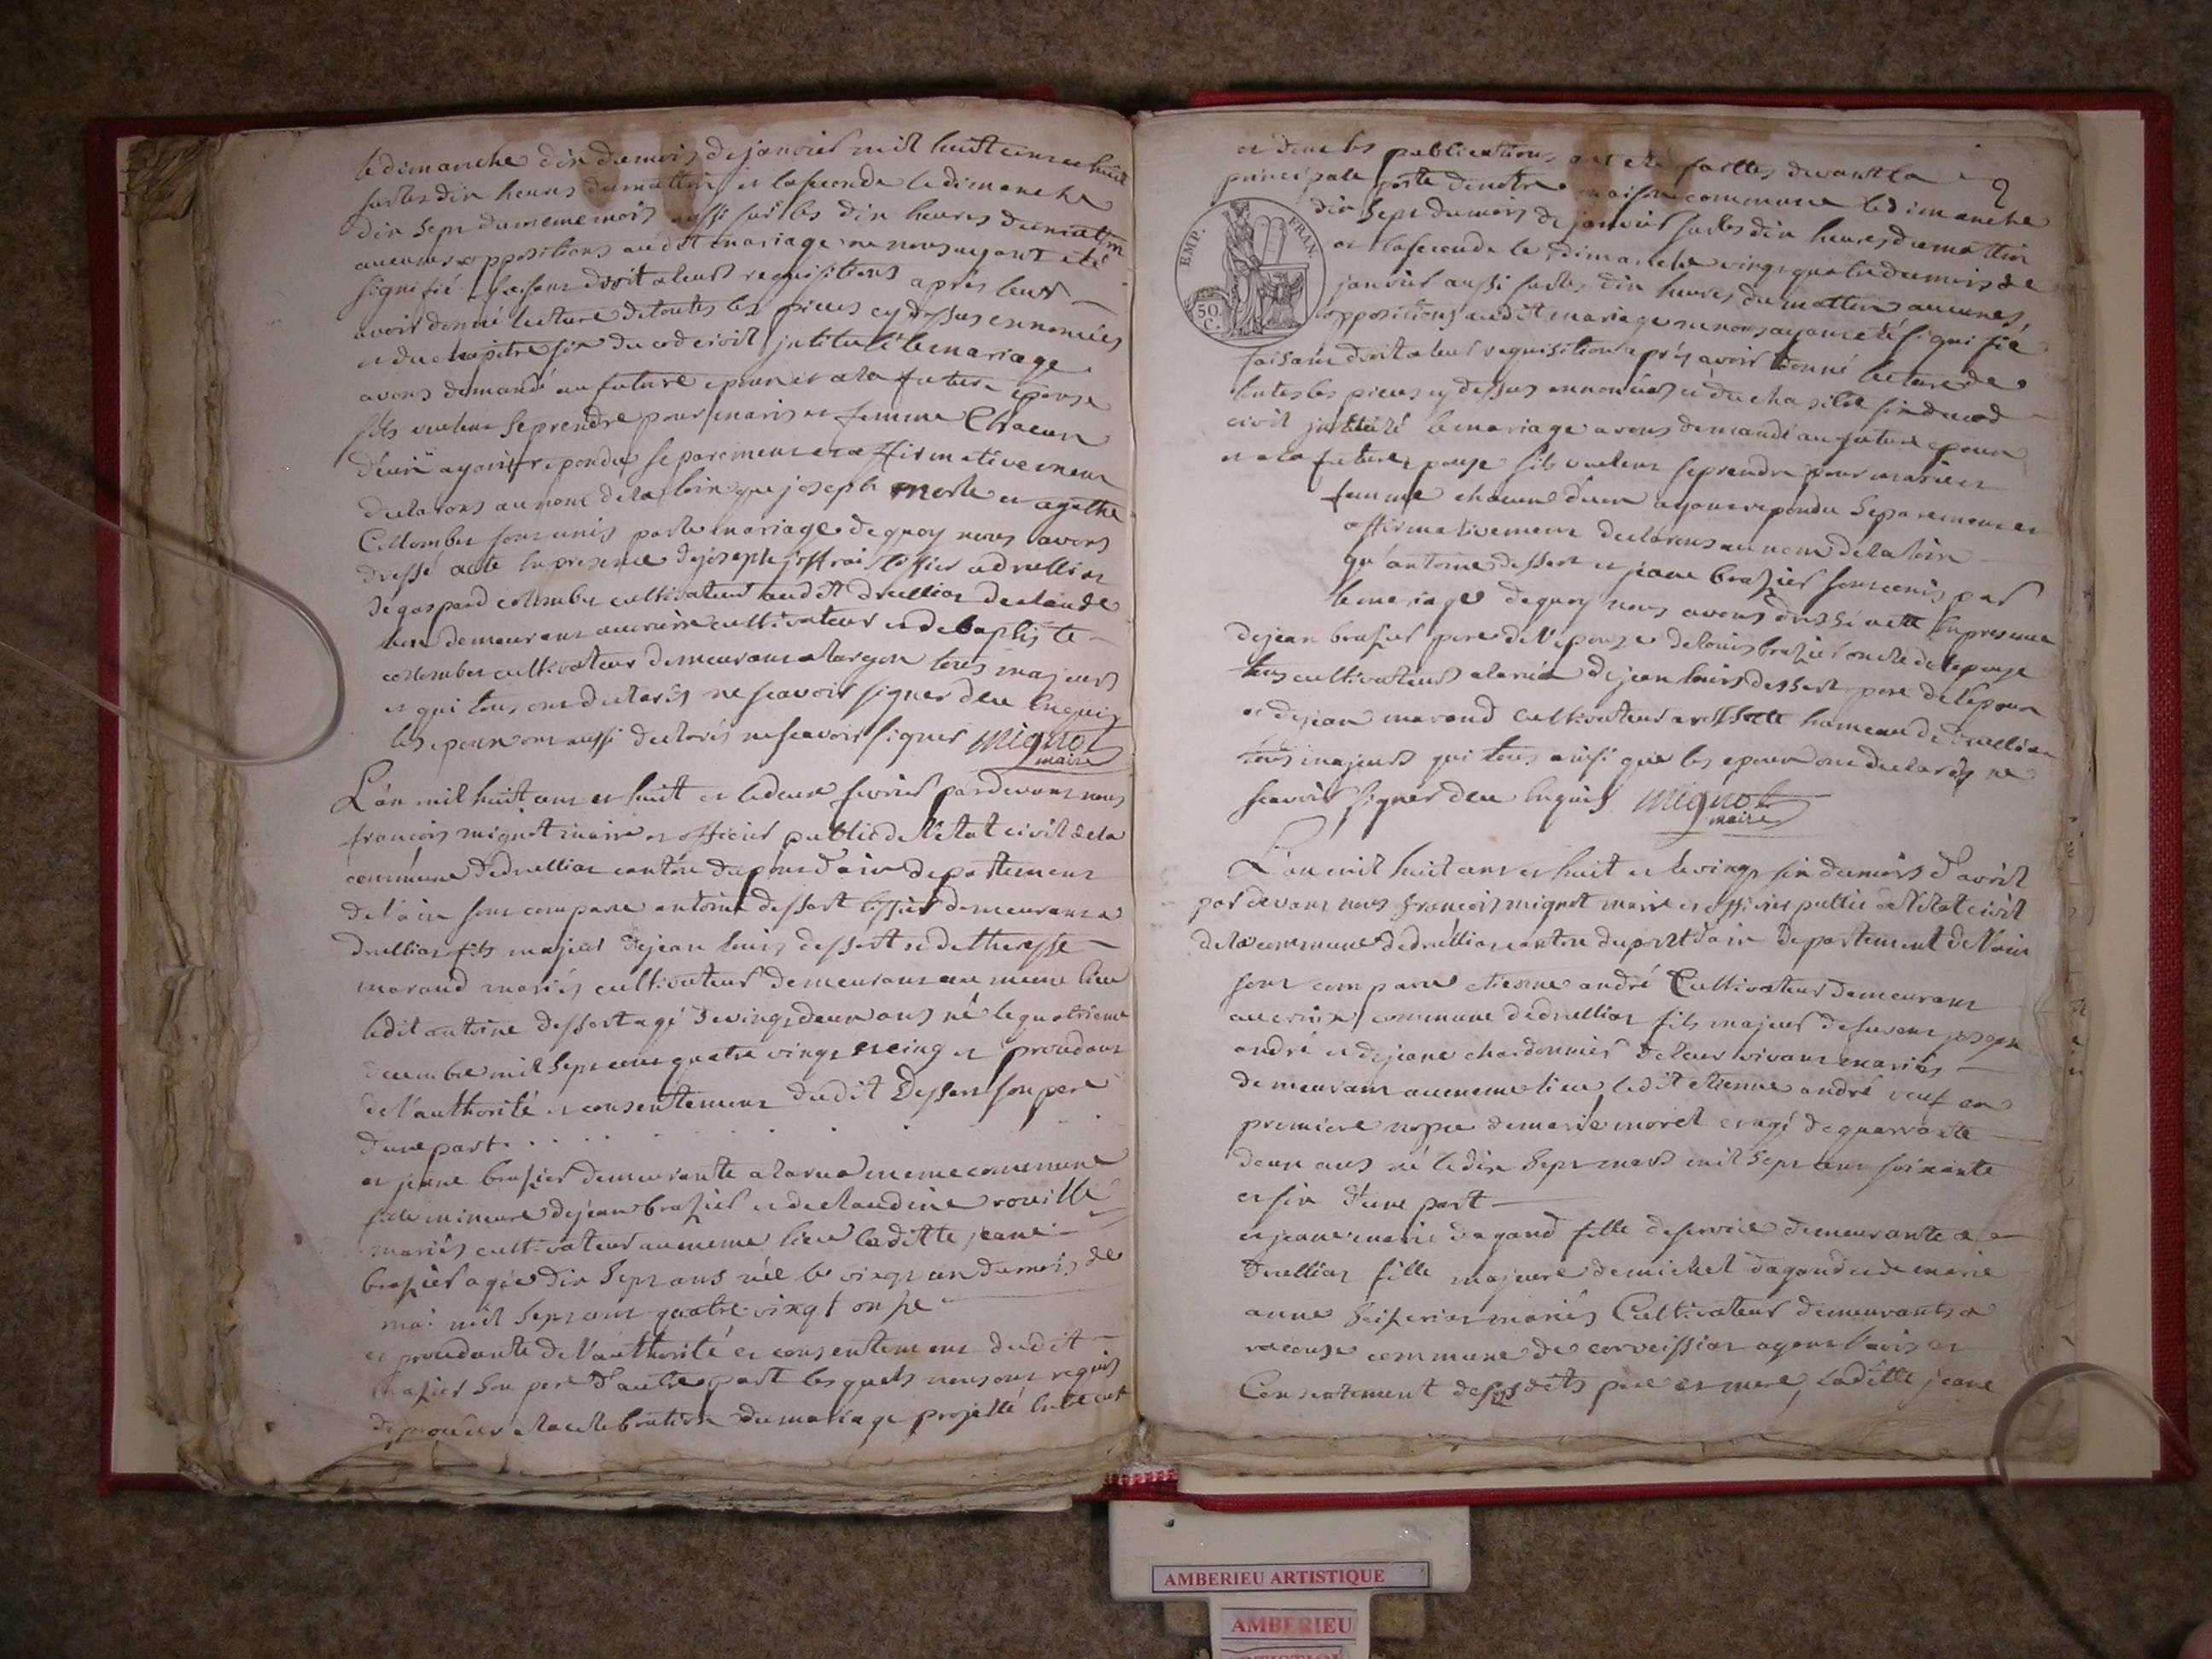 le dimanche dix du mois de janvier mil huit cent et huit
sur les dix heures du mattin et la seconde le dimanche
dix sept du meme mois aussi sur les dix heures du mattin
aucunes oppositions audit mariage ne nous ayant eté
signifié faisant droit a leurs requisitions apres leur
avoir donné lecture de toutes les pieces cy dessus ennoncées
et du chapitre six du cod civil intitulé le mariage
avons demandé au future epoux et a la future epouse
sils veulent se prendre pour maris et femme Chacun
d'eux ayant repondu separement et affirmativement
declarons au nom de la loix que joseph merle et agathe
Collombet sont unis par le mariage de quoy nous avons
dressé acte en presence de joseph tissier a druilliat
de gaspard colombet cultivateur audit druilliat de claude
demeurant cultivateur et de baptiste
collombet cultivateur demeurant tous majeurs
et qui tous ont declarés ne scavoir signer de ce enquis
les epoux ont aussi declarés ne scavoir signer mignot
maire
L'an mil huit cent et huit et le deux fevrier pardevant nous
françois mignot maire et officier public de l'etat civil de la
commune de druilliat canton du pont d'ain departement
de l'ain sont comparu antoine dessert tissier demeurant a
druilliat fils majeur de jean louis dessert et de theresse
marand mariés cultivateur demeurant au meme lieu
ledit antoine dessert agé de vingt deux ans né le quatrieme
decembre mil sept cent quatre vingt et cinq et procedant
de l'authorité et consentement dudit Dessert son pere
d'une part
et jeane brazier demeurante a la rua meme commune
fille mineure de jean brazier et de claudine rouille
mariés cultivateur au meme lieu laditte jeane
brazier agée dix sept ans née le vingt un du mois de
mai mil sept cent quatre vingt onze
et procedante de l'authorité et consentement dudit
brazier son pere d'autre part lesquels nous ont requis
de proceder a la celebration du mariage projetté entre eux
2
et dont les publications ont eté faittes devant la
principale porte de notre maison commune le dimanche
dix sept du mois de janvier sur les dix heures du mattin
et la seconde le dimanche vingt quatre du mois de
janvier aussi sur les dix heures du mattin aucunes
oppositions audit mariage ne nous ayant eté signifié
EMP. FRAN.
50 C.
faisant droit a leur requisition apres avoir donné lecture de
toutes les pieces cy dessus ennoncées et du chapitre six du cod
civil intitulé le mariage avons demandé au future epoux
et a la future epouse sils veulent se prendre pour maris et
femme chacun d'eux ayant repondu separement et
affirmativement declarons au nom de la loix
qu'antoine dessert et jeane brazier sont unis par
le mariage de quoy nous avons dressé acte en presence
de jean brazier pere de l'epouse de louis brazier oncle de l'epouse
tous cultivateurs a la rua de jean louis dessert pere de l'epoux
et de jean marand cultivateur a hameau de druilliat
tous majeurs qui tous ainsi que les epoux ont declarés ne
scavoir signer de ce enquis mignot
maire
L'an mil huit cent et huit et le vingt six du mois d'avril
par devant nous françois mignot maire et officier public de l'etat civil
de la commune de druilliat canton du pont d'ain departement de l'ain
sont comparu etienne andré Cultivateur demeurant
commune de druilliat fils majeur de joseph
andré et de jeane chardonnier de leur vivant mariés
demeurant au meme lieu ledit etienne andré veuf en
premiere nopce de marie morel et agé de quarrante
deux ans né le dix sept mars mil sept cent soixante
et six d'une part
et jeane marie dagand fille de service demeurante a
druilliat fille majeure de michel dagand et de marie
anne mariés Cultivateur demeurants a
racouse commune de corveissiat ayant l'avis et
Consentement de ses dits pere et mere, laditte jeane
AMBERIEU ARTISTIQUE
AMBERIEU